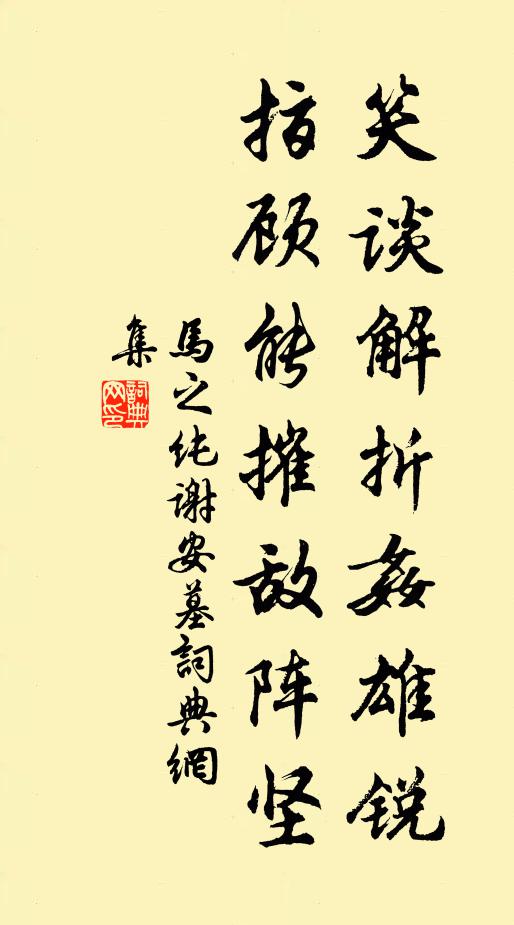 笑谈解折姦雄锐
指顾能摧敌阵坚
馬之纯谢安墓詞典網
集
詞典網印